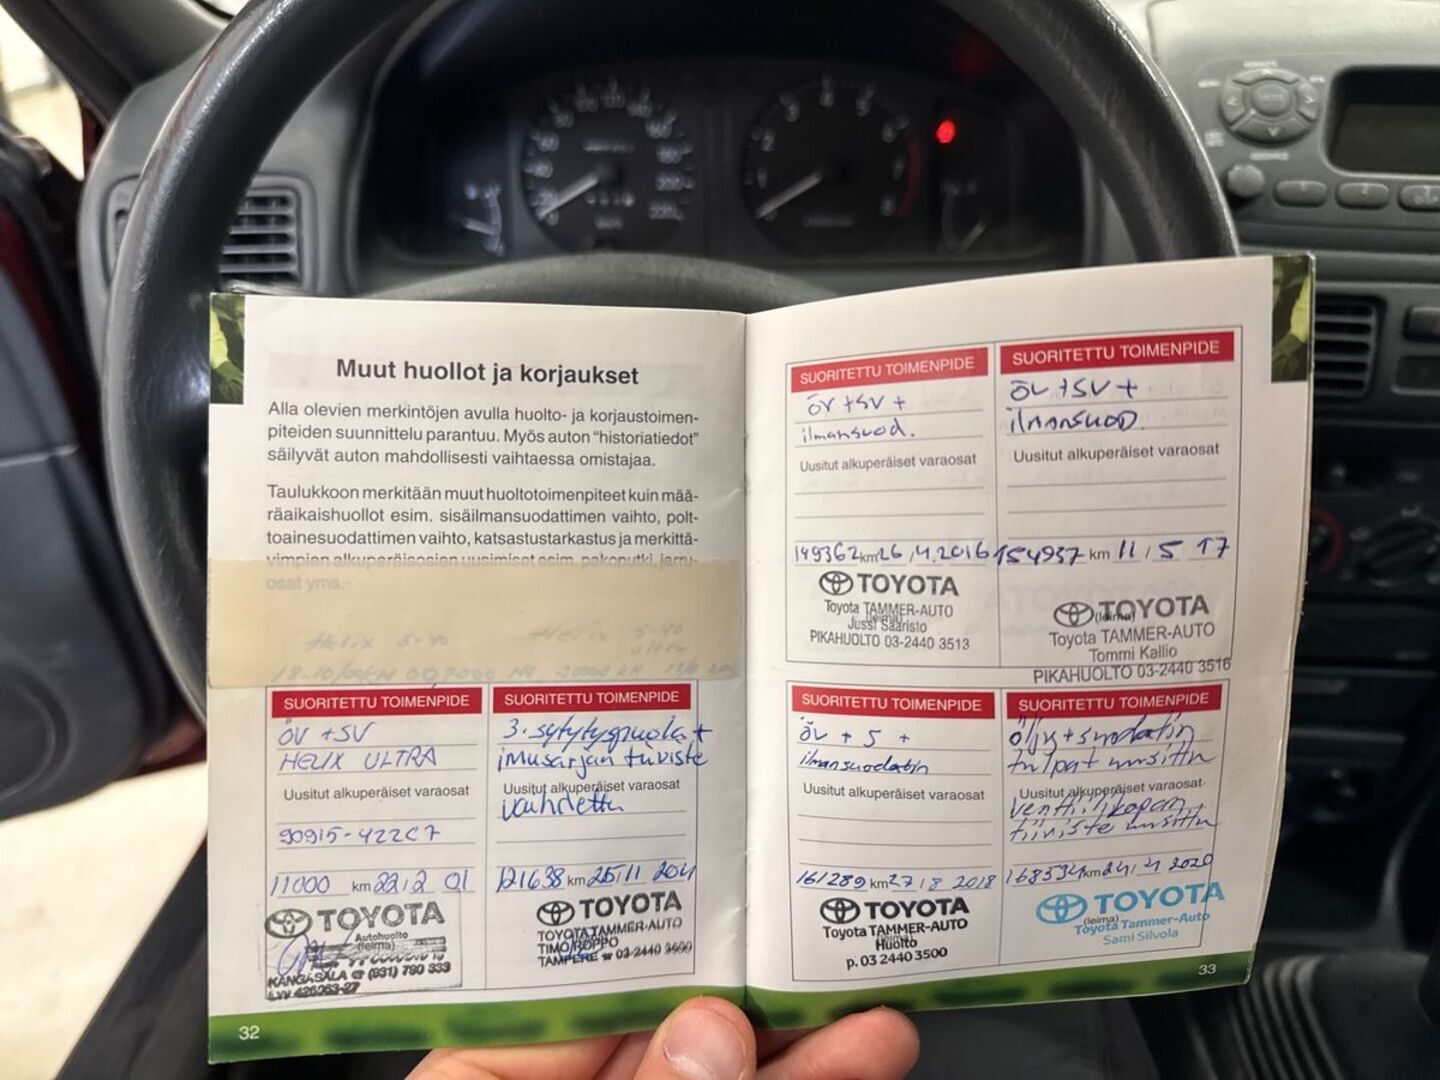 Muut huollot ja korjaukset
Alla olevien merkintöjen avulla huolto- ja korjaustoimen-
piteiden suunnittelu parantuu. Myös auton “historiatiedot”
säilyvät auton mahdollisesti vaihtaessa omistajaa.
Taulukkoon merkitään muut huoltotoimenpiteet kuin mää-
räaikaishuollot esim. sisäilmansuodattimen vaihto, polt-
toainesuodattimen vaihto, katsastustarkastus ja merkittä-
vimpien alkuperäisosien uusimiset esim. pakoputki, jarru-
osat yms.
Helix 5-40 Helix 5-40
ultra
SUORITETTU TOIMENPIDE
ÖV +SV
HELIX ULTRA
Uusitut alkuperäiset varaosat
11000 km 22/2 01
TOYOTA
Autohuolto
(leima)
KANGASALA ☎ (931) 790 333
SUORITETTU TOIMENPIDE
3. sytytyspuola +
imusarjan tiiviste
Uusitut alkuperäiset varaosat
vaihdettu
121638 km 25/11 2011
TOYOTA
TOYOTA TAMMER-AUTO
TIMO ROPPO
TAMPERE ☎ 03-2440 3500
32
SUORITETTU TOIMENPIDE
öv +sv +
ilmansuod.
Uusitut alkuperäiset varaosat
149362 km 26/4.2016
TOYOTA
Toyota TAMMER-AUTO
(leima)
Jussi Saaristo
PIKAHUOLTO 03-2440 3513
SUORITETTU TOIMENPIDE
öv +sv +
ilmansuod.
Uusitut alkuperäiset varaosat
154937 km 11/5 17
TOYOTA
(leima)
Toyota TAMMER-AUTO
Tommi Kallio
PIKAHUOLTO 03-2440 3516
SUORITETTU TOIMENPIDE
öv + s +
ilmansuodatin
Uusitut alkuperäiset varaosat
161289 km 27/8 2018
TOYOTA
Toyota TAMMER-AUTO
(leima)
Huolto
p. 03 2440 3500
SUORITETTU TOIMENPIDE
öljy + suodatin
tulpat uusittu
Uusitut alkuperäiset varaosat
venttiilikopan
tiiviste uusittu
km 2020
TOYOTA
(leima)
Toyota Tammer-Auto
Sami Silvola
33